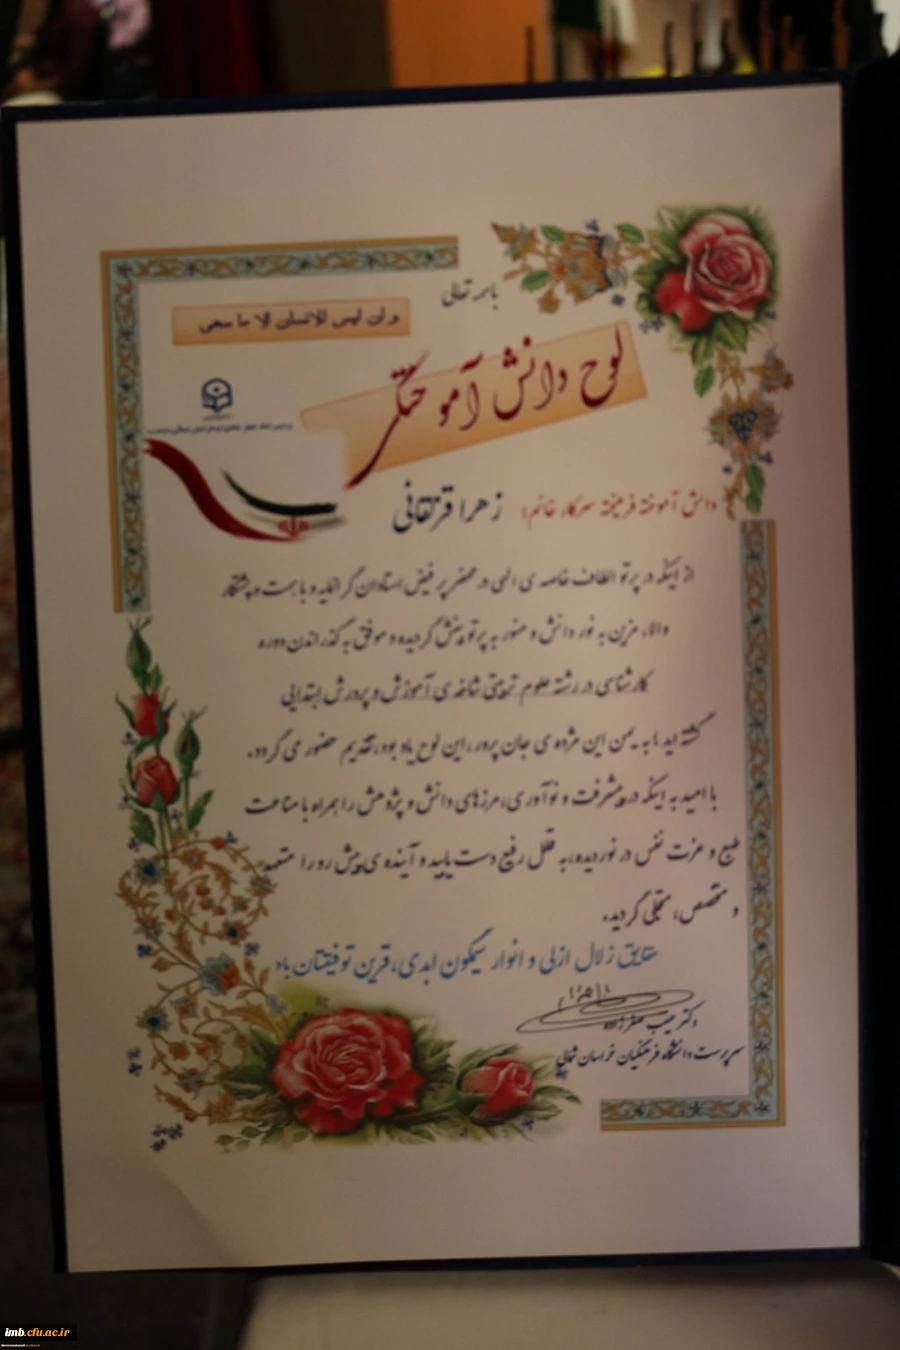 باسمه تعالی
و ان لیس للانسان الا ما سعی
لوح دانش آموختگی
دانش آموخته فرهیخته سرکار خانم: زهرا قرنقانی
از اینکه در پرتو الطاف خاصه ی الهی در محضر پر فیض استادان گرانمایه و با همت و پشتکار
والا، مزین به نور دانش و منور به پرتو بینش گردیده و موفق به گذراندن دوره
کارشناسی در رشته علوم تربیتی شاخه ی آموزش و پرورش ابتدایی
گشته اید، به یمن این مژده ی جان پرور، این لوح یادبود، تقدیم حضور می گردد.
با امید به اینکه در پیشرفت و نوآوری، مرزهای دانش و پژوهش را همراه با مناعت
طبع و عزت نفس در نوردیده، به قلل رفیع دست یابید و آینده ی پیش رو را متعهد
و متخصص، متجلی گردید.
حقایق زلال ازلی و انوار سیمگون ابدی، قرین توفیقتان باد
دکتر
سرپرست دانشگاه فرهنگیان خراسان شمالی
imb.cfu.ac.ir